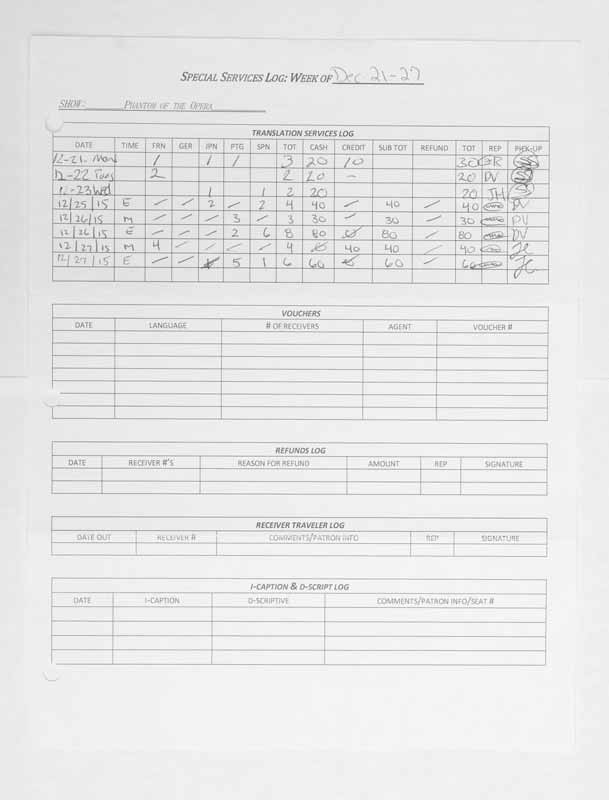 SPECIAL SERVICES LOG: WEEK OF Dec 21-27
SHOW: PHANTOM OF THE OPERA
TRANSLATION SERVICES LOG
DATE TIME FRN GER JPN PTG SPN TOT CASH CREDIT SUB TOT REFUND TOT REP PICK-UP
12-21 Mon 1 1 1 3 20 10 30 GR
12-22 Tues 2 2 20 - 20 DV
12-23 Wed 1 1 2 20 20 JH
12/25/15 E / / 2 / 2 4 40 / 40 / 40 DV
12/26/15 M / / / 3 / 3 30 / 30 / 30 DV
12/26/15 E / / / 2 6 8 80 80 / 80 DV
12/27/15 M 4 / / / / 4 40 40 / 40 JC
12/27/15 E / / 5 1 6 60 60 / 60 JC
VOUCHERS
DATE LANGUAGE # OF RECEIVERS AGENT VOUCHER #
REFUNDS LOG
DATE RECEIVER #'S REASON FOR REFUND AMOUNT REP SIGNATURE
RECEIVER TRAVELER LOG
DATE OUT RECEIVER # COMMENTS/PATRON INFO REP SIGNATURE
I-CAPTION & D-SCRIPT LOG
DATE I-CAPTION D-SCRIPTIVE COMMENTS/PATRON INFO/SEAT #